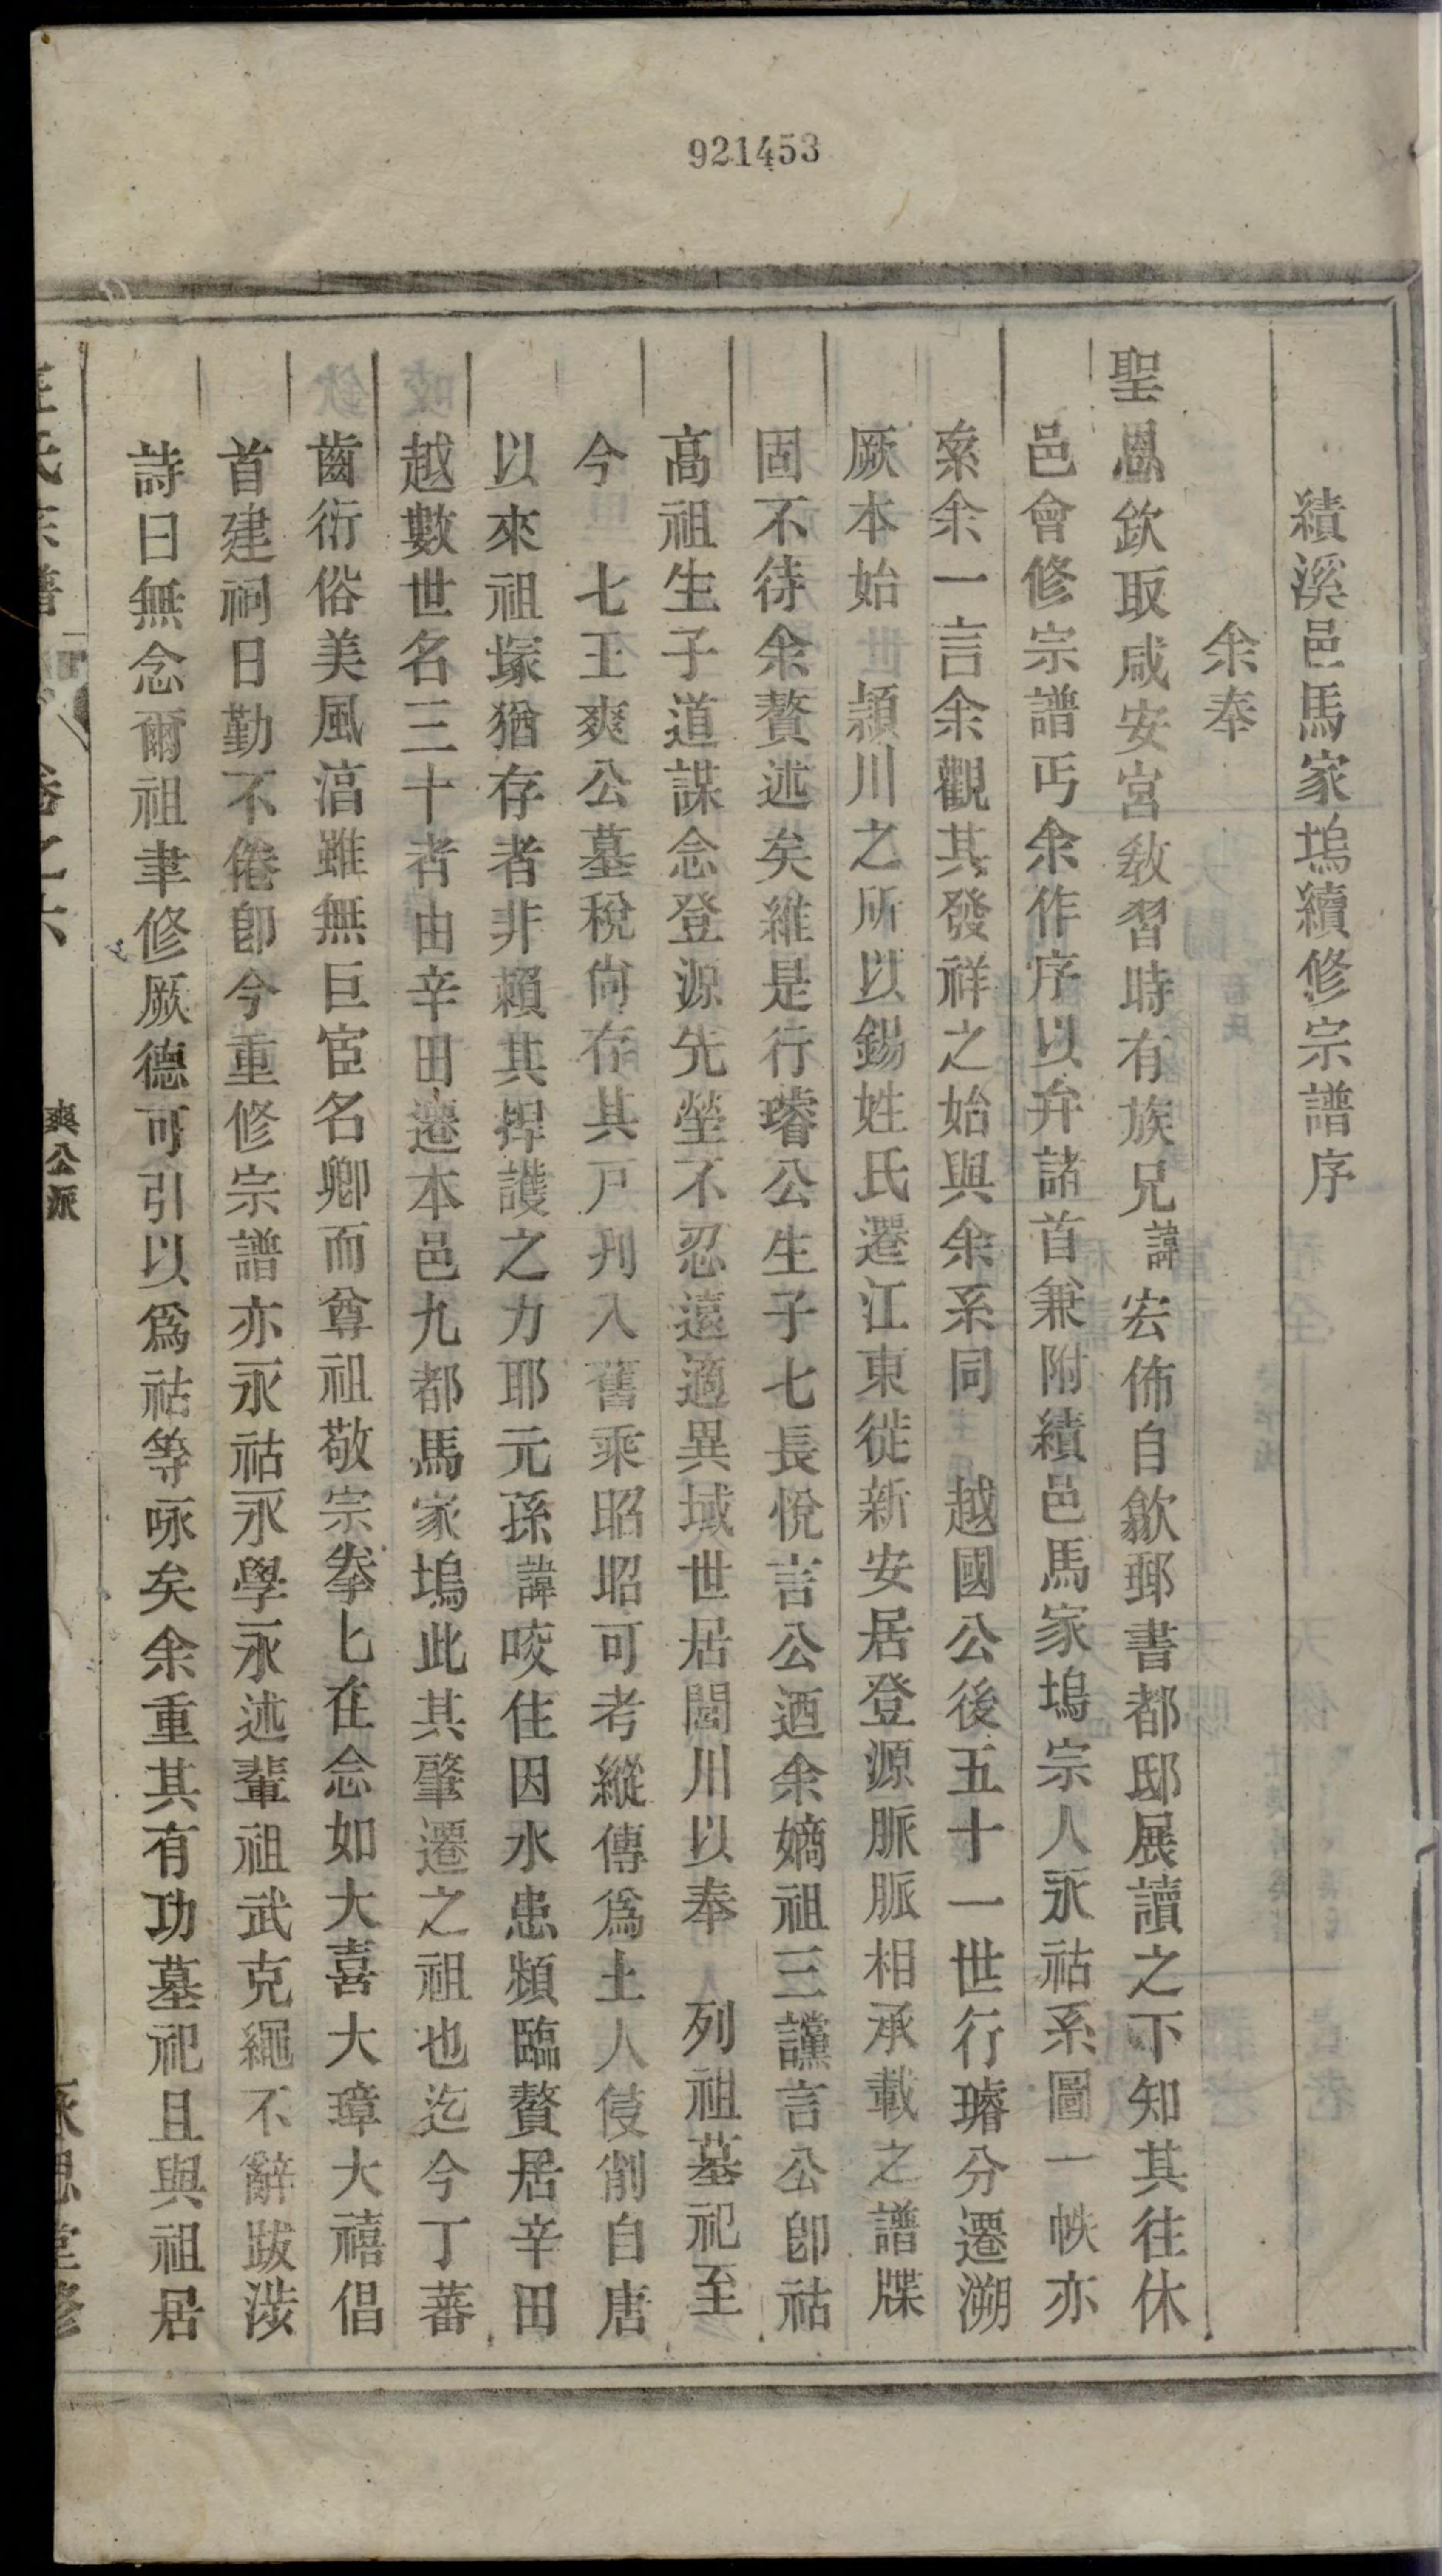 921453
績溪邑馬家塢續修宗譜序
余奉
聖恩欽取咸安宮敎習時有族兄諱宏佈自歙郵書都邸展讀之下知其往休
邑會修宗譜丐余作序以弁諸首兼附績邑馬家塢宗人永祜系圖一帙亦
索余一言余觀其發祥之始與余系同 越國公後五十一世行璿分遷溯
厥本始 潁川之所以錫姓氏遷江東徙新安居登源脈脈相承載之譜牒
固不待余贅述矣維是行璿公生子七長悅言公迺余嫡祖三讜言公卽祜
高祖生子道謀念登源先塋不忍遠適異域世居閶川以奉 列祖墓祀至
今 七王爽公墓稅尙存其戸刋入舊乘昭昭可考縱傳爲土人侵削自唐
以來祖塚猶存者非賴其捍護之力耶元孫諱咬住因水患頻臨贅居辛田
越數世名三十者由辛田遷本邑九都馬家塢此其肇遷之祖也迄今丁蕃
齒衍俗美風湻雖無巨宦名卿而尊祖敬宗拳匕在念如大喜大璋大禧倡
首建祠日勤不倦卽今重修宗譜亦永祜永學永述輩祖武克繩不辭跋涉
詩曰無念爾祖聿修厥德可引以爲祜等咏矣余重其有功墓祀且與祖居
卷之六
爽公派